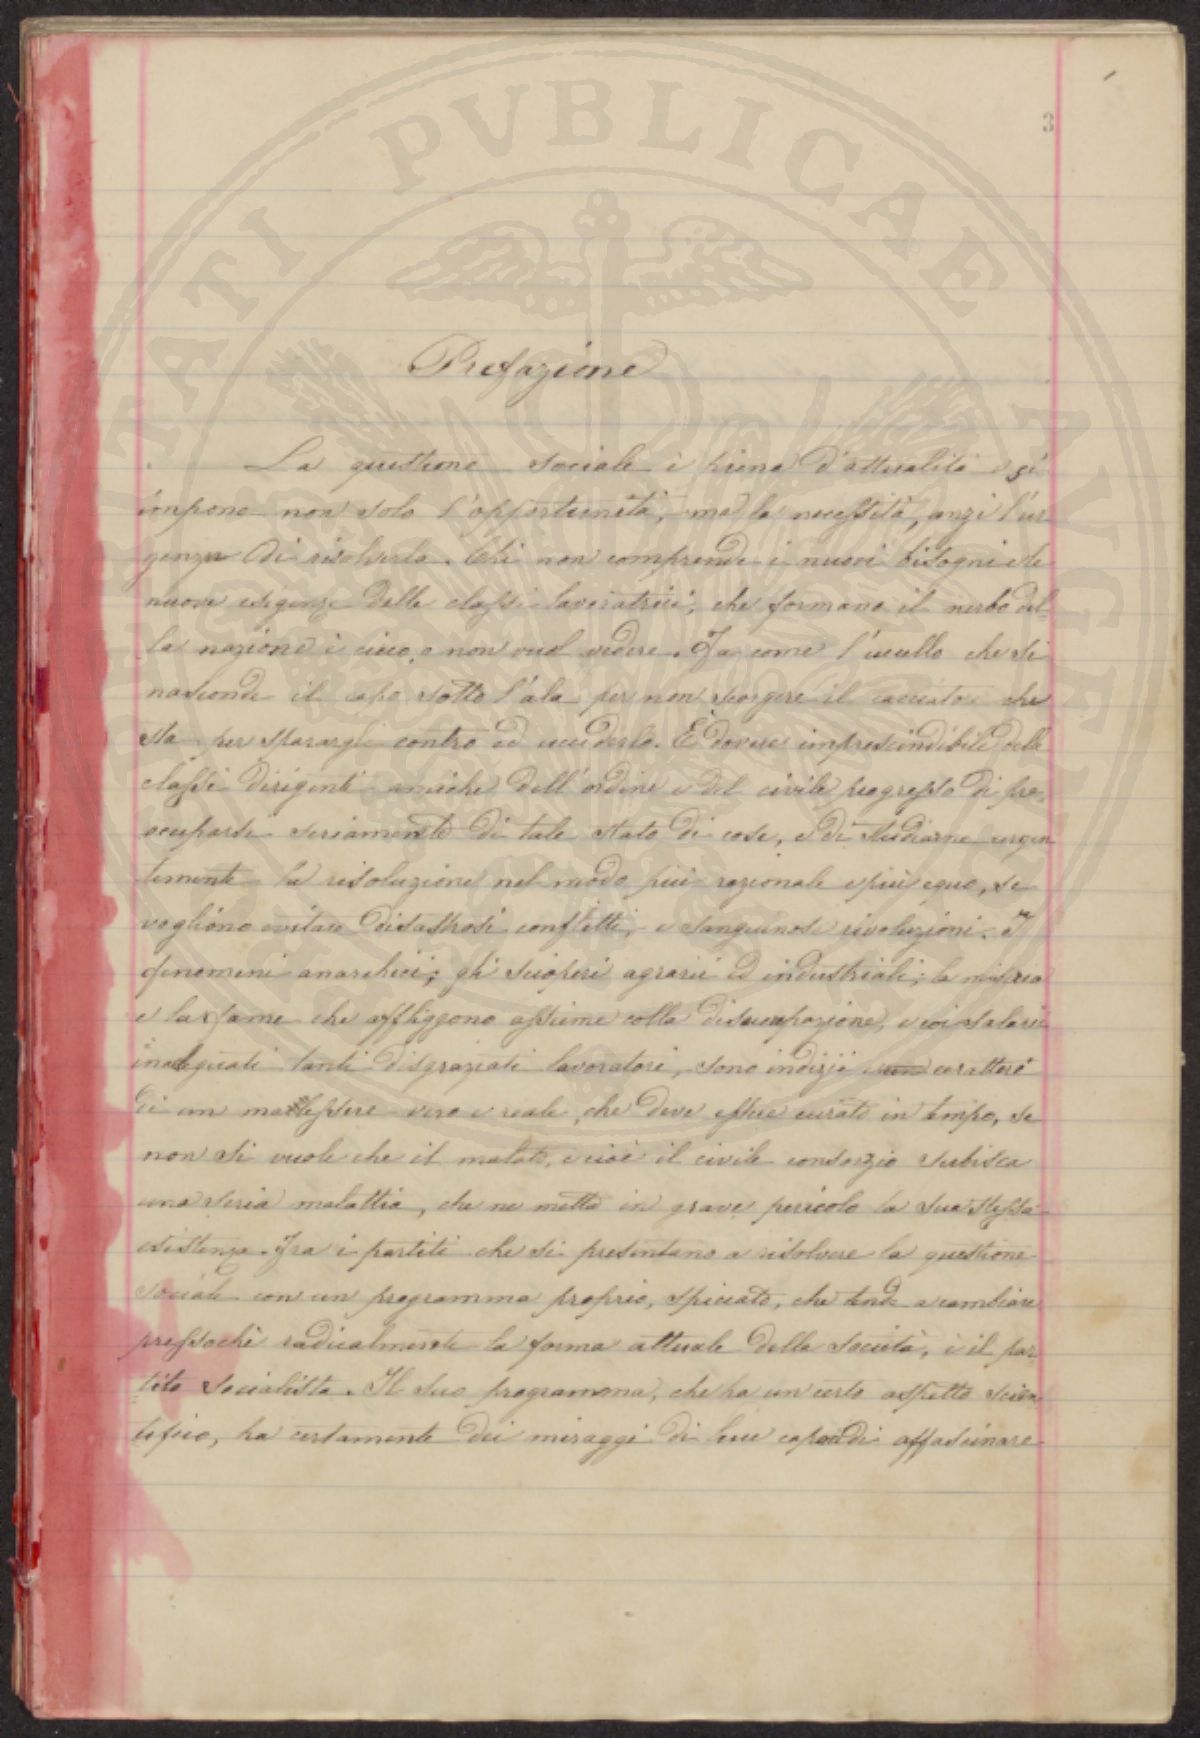 3
Prefazione
La questione sociale è piena d'attualità e si
impone non solo l'opportunità, ma la necessità, anzi l'ur-
genza di risolverla. Chi non comprende i nuovi bisogni e le
nuove esigenze delle classi lavoratrici, che formano il nerbo del-
la nazione è cieco, o non vuol vedere. Fa come l'uccello che si
nasconde il capo sotto l'ala per non scorgere il cacciatore che
sta per sparargli contro ed ucciderlo. È dovere imprescindibile delle
classi dirigenti amiche dell'ordine e del civile progresso di pre-
occuparsi seriamente di tale stato di cose, e di studiarne urgen
temente la risoluzione nel modo più razionale e più equo, se
vogliono evitare disastrosi conflitti, e sanguinose rivoluzioni. I
fenomeni anarchici; gli scioperi agrarii ed industriali; la miseria
e la fame che affliggono assieme colla disoccupazione, e coi salari
inadeguati tanti disgraziati lavoratori, sono indizii e un caratteri
di un malessere vero e reale, che deve essere curato in tempo, se
non si vuole che il malato, e cioè il civile consorzio subisca
una seria malattia, che ne metta in grave pericolo la sua stessa
esistenza. Fra i partiti che si presentano a risolvere la questione
sociale con un programma proprio, spiccato, che tende a cambiare
pressochè radicalmente la forma attuale della società, è il par-
tito socialista. Il suo programma, che ha un certo aspetto scien
tifico, ha certamente dei miraggi di luce capaci di affascinare
PVBLICAE